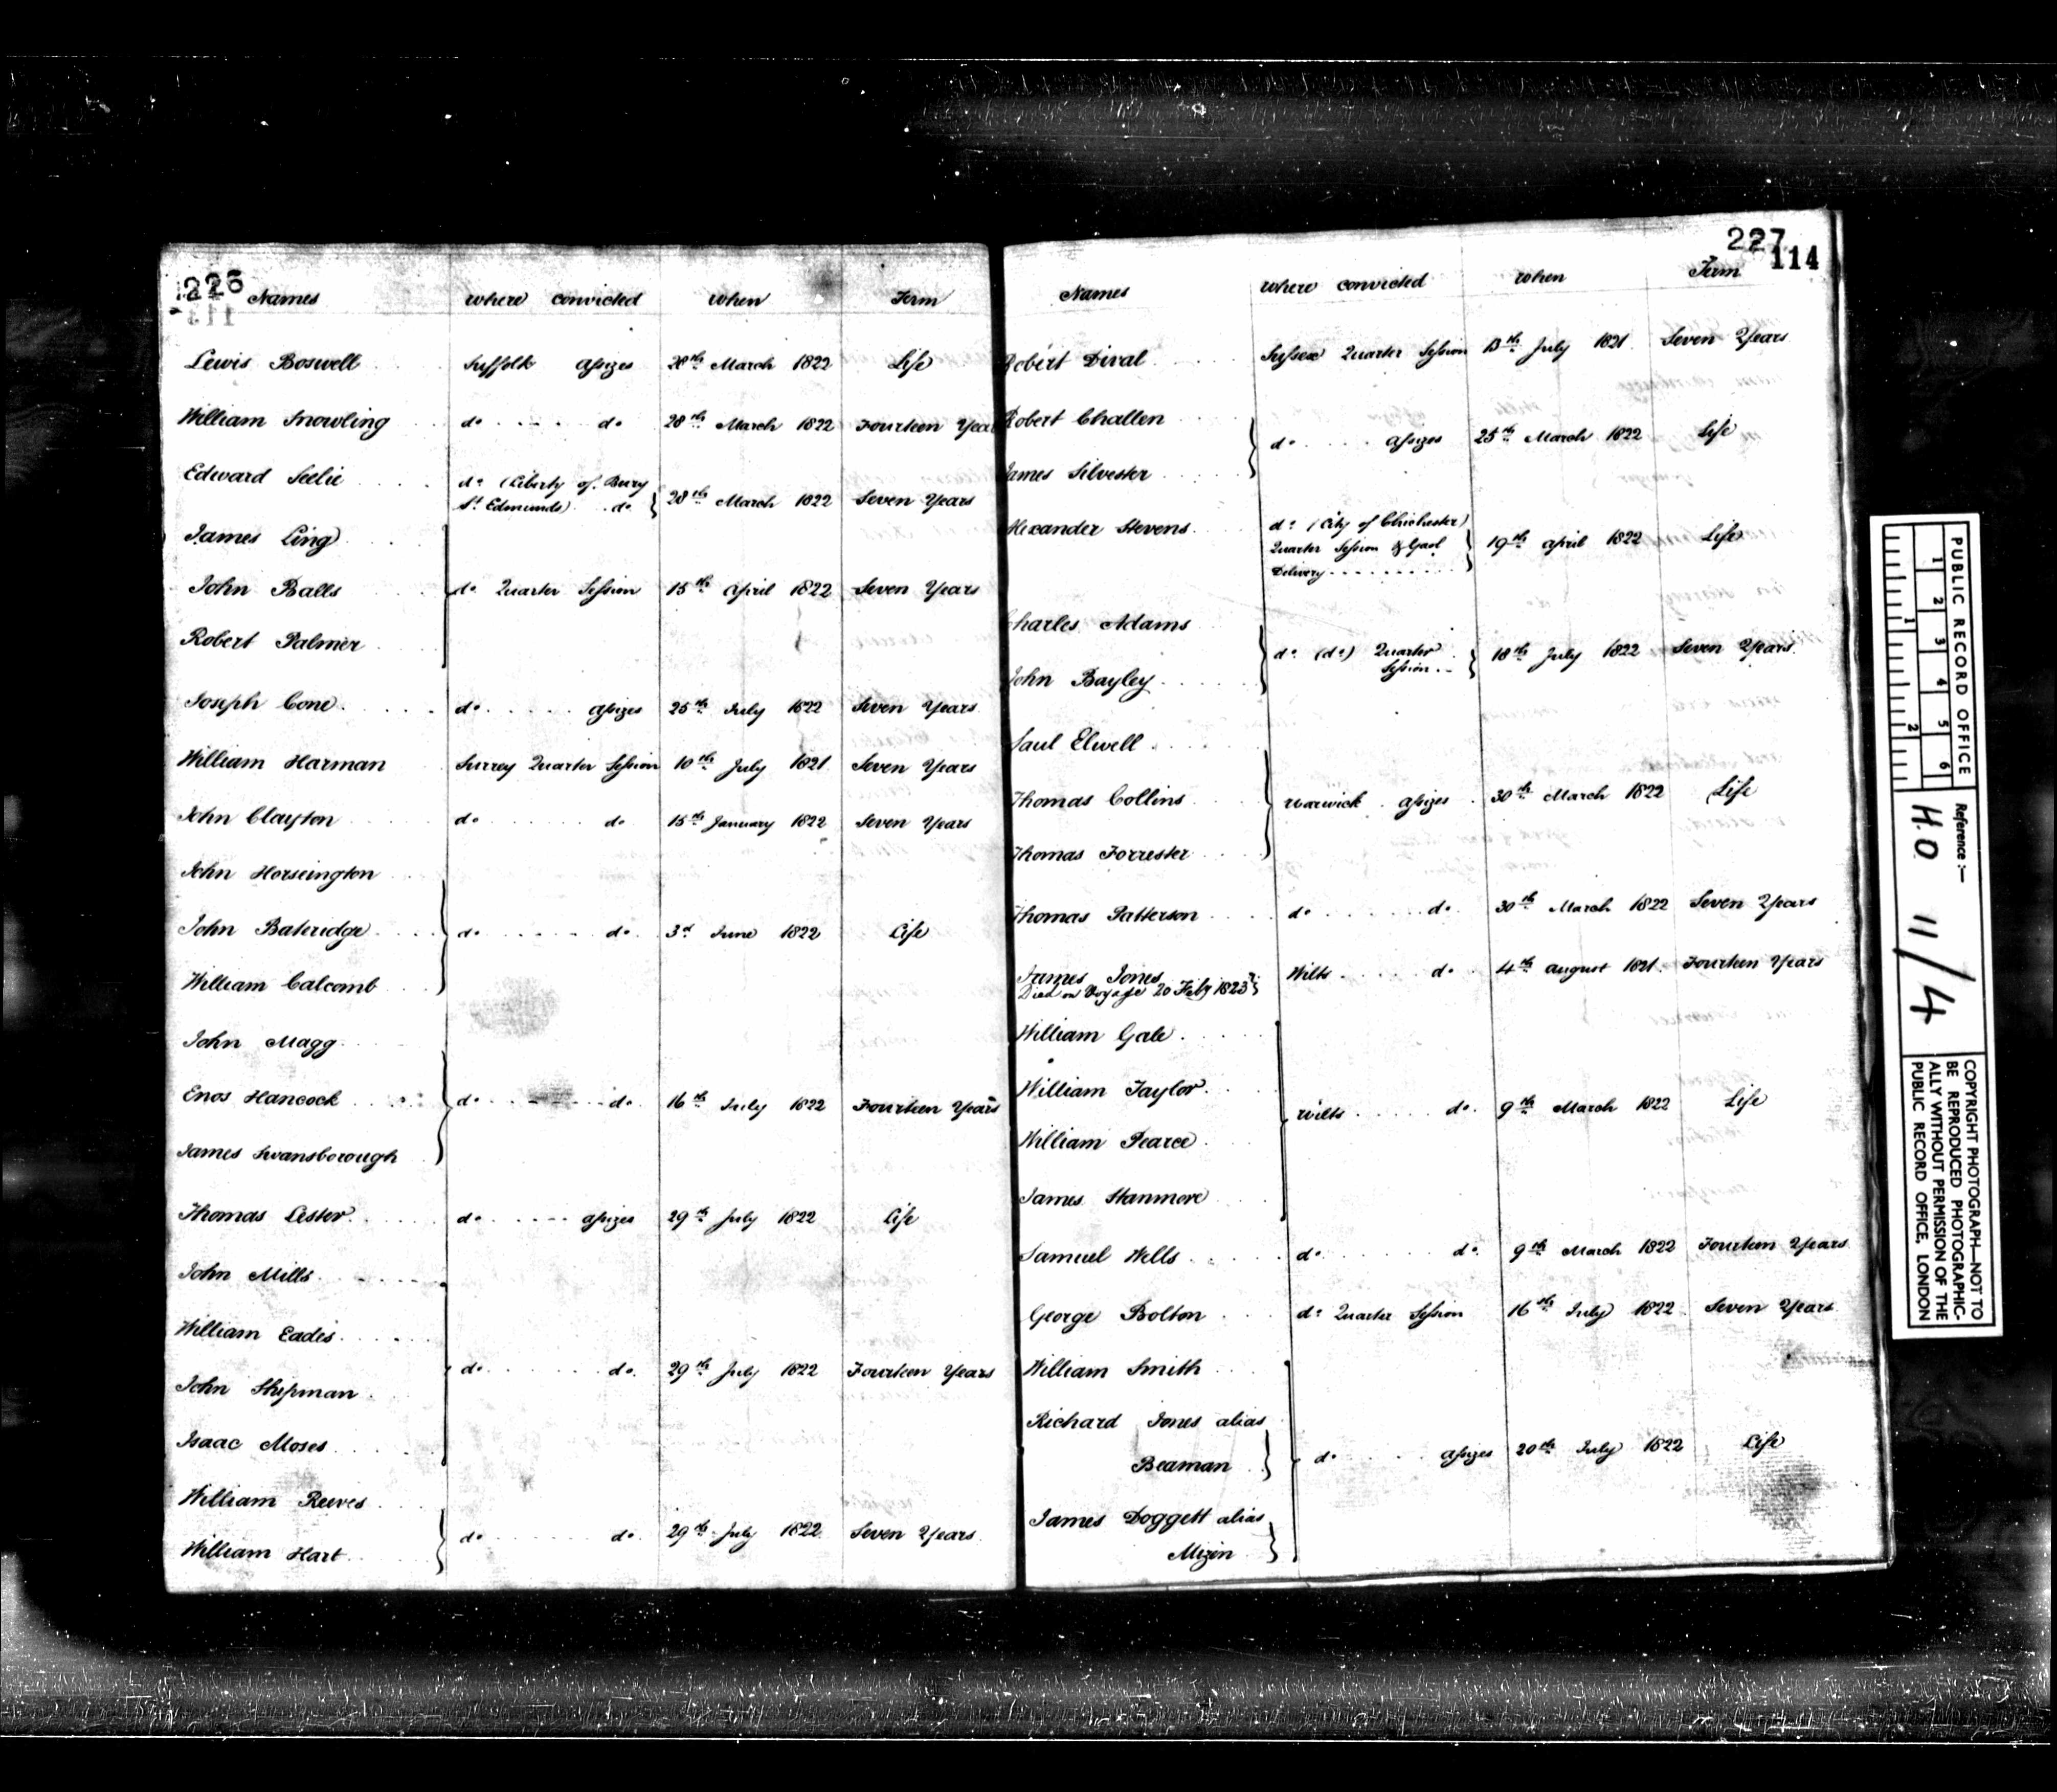 226
Names where convicted when Term
Lewis Boswell Suffolk Assizes 28th March 1822 Life
William Snowling do do 28th March 1822 Fourteen Years
Edward Seelie do (Liberty of Bury
St Edmunds) do 28th March 1822 Seven Years
James Ling
John Balls do Quarter Session 15th April 1822 Seven Years
Robert Palmer
Joseph Cone do Assizes 25th July 1822 Seven Years
William Harman Surrey Quarter Session 10th July 1821 Seven Years
John Clayton do do 15th January 1822 Seven Years
John Horsington
John Bateridge do do 3d June 1822 Life
William Calcomb
John Magg
Enos Hancock do do 16th July 1822 Fourteen Years
James Swansborough
Thomas Lester do Assizes 29th July 1822 Life
John Mills
William Eades
do do 29th July 1822 Fourteen Years
John Shipman
Isaac Moses
William Reeves
do do 29th July 1822 Seven Years
William Hart
227
114
Names where convicted when Term
Robert Dival Sussex Quarter Session 13th July 1821 Seven Years
Robert Challen
do Assizes 25th March 1822 Life
James Silvester
Alexander Stevens do (City of Chichester)
Quarter Session & Gaol 19th April 1822 Life
Delivery
Charles Adams
do (do) Quarter 18th July 1822 Seven Years
Session
John Bayley
Saul Elwell
Thomas Collins Warwick Assizes 30th March 1822 Life
Thomas Forrester
Thomas Patterson do do 30th March 1822 Seven Years
James Jones Wilts do 4th August 1821 Fourteen Years
Died on Voyage 20 Feby 1823
William Gale
William Taylor
Wilts do 9th March 1822 Life
William Pearce
James Stanmore
Samuel Wells do do 9th March 1822 Fourteen Years
George Bolton do Quarter Session 16th July 1822 Seven Years
William Smith
Richard Jones alias
Beaman do Assizes 20th July 1822 Life
James Doggett alias
Mizin
PUBLIC RECORD OFFICE
1 2 3 4 5 6
1 2
Reference:—
H.O 11/4
COPYRIGHT PHOTOGRAPH—NOT TO
BE REPRODUCED PHOTOGRAPHIC-
ALLY WITHOUT PERMISSION OF THE
PUBLIC RECORD OFFICE, LONDON